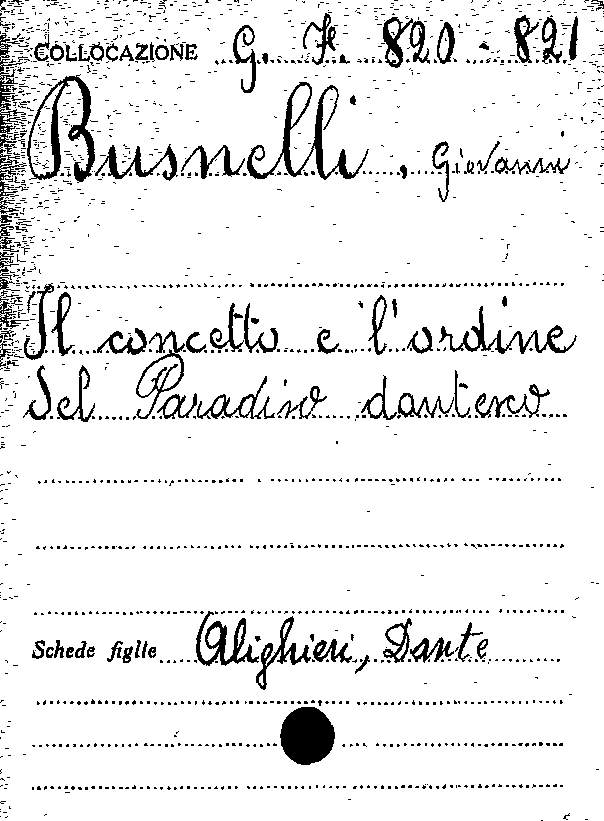 COLLOCAZIONE G. F. 820-821
Busnelli, Giovanni
Il concetto e l'ordine
del Paradiso dantesco
Schede figlie Alighieri, Dante